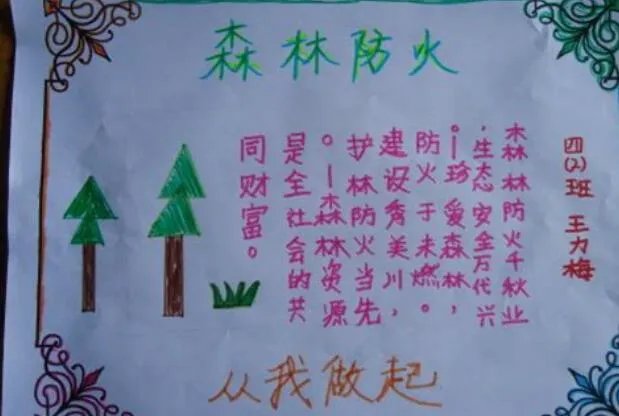 森林防火
四(2)班 王力梅
森林防火千秋业
，生态安全万代兴
。—珍爱森林，
防火于未燃。
建设秀美川，
护林防火当先
。—森林资源
是全社会的共
同财富。
从我做起